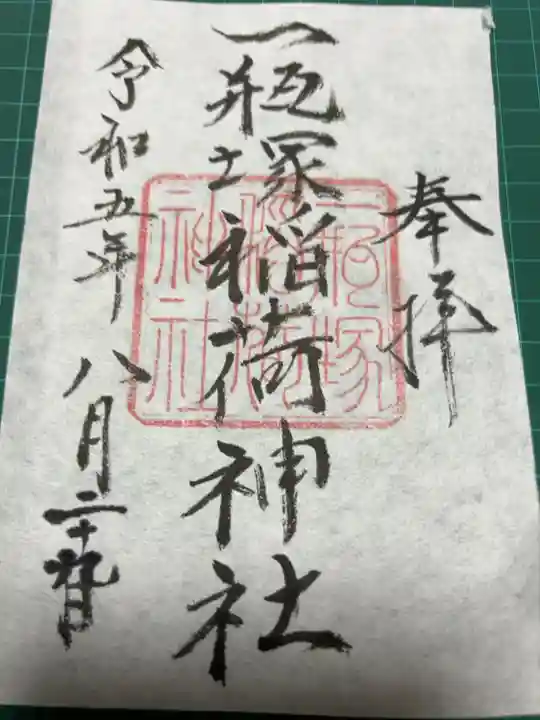 奉拝
一瓶塚稲荷神社
一瓶塚稲荷神社
令和五年八月二十九日